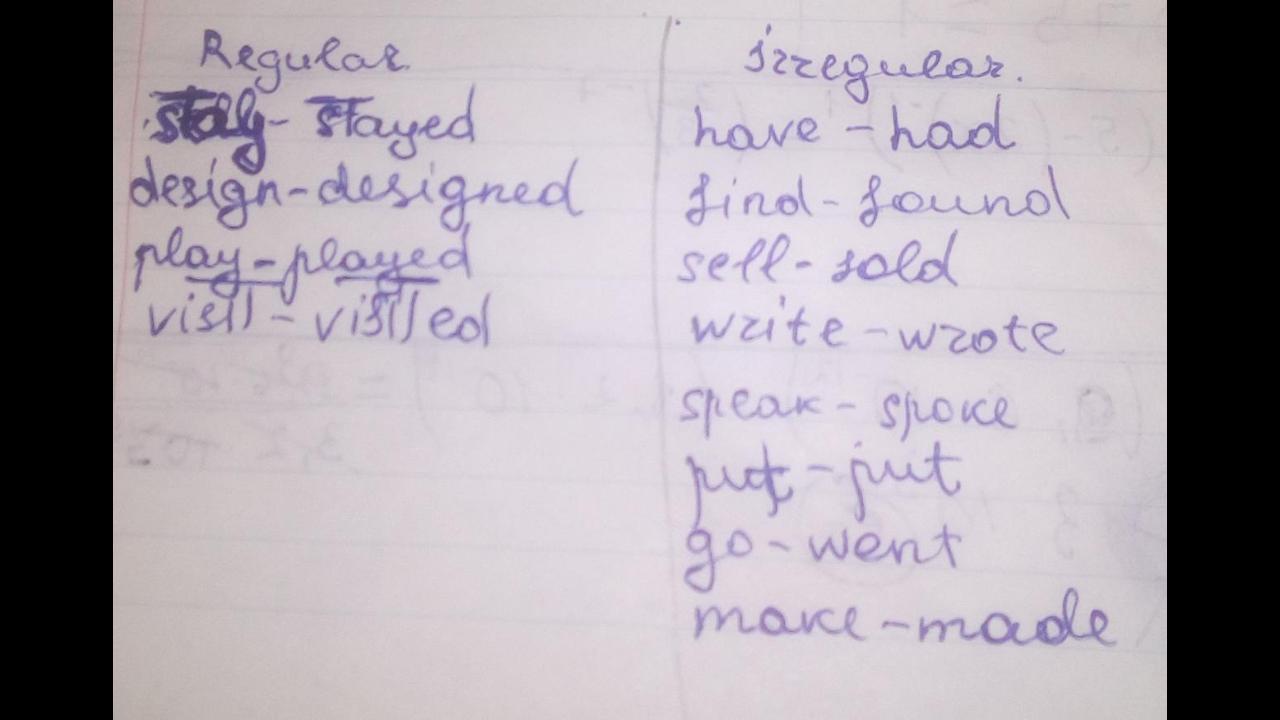 Regular.
stay - stayed
design - designed
play - played
visit - visited
Irregular.
have - had
find - found
sell - sold
write - wrote
speak - spoke
put - put
go - went
make - made